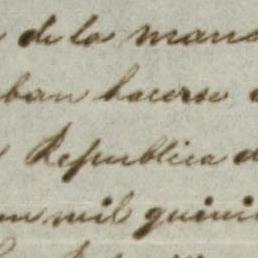 de la mane
ban hacerse
Republica d
mil quini